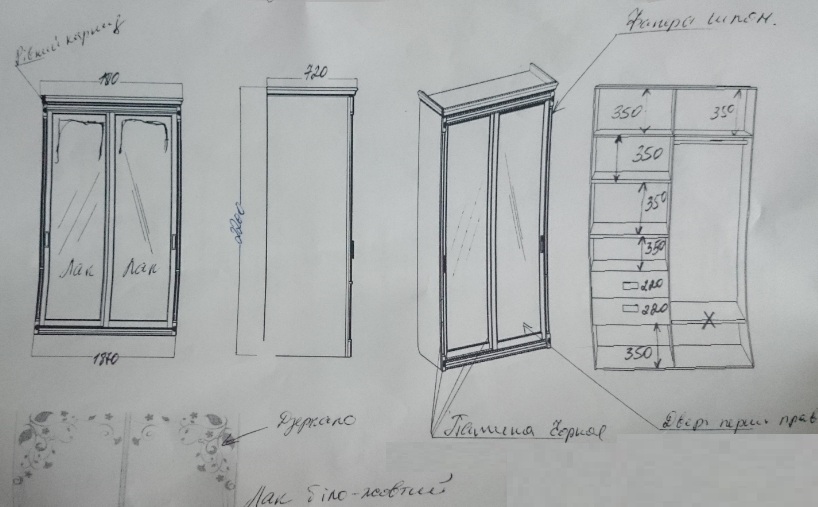 Рівний карниз
Фанера шпон.
180
720
350
350
350
350
350
Лак
Лак
220
220
350
1870
Дзеркало
Патина Чорная
Двері перші прав
Лак біло-жовтий